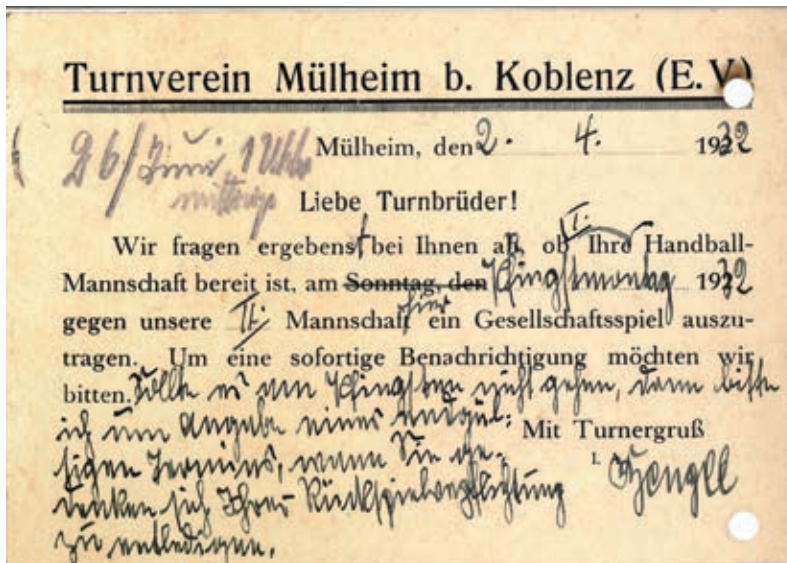 Turnverein Mülheim b. Koblenz (E.V.)
26/Juni 1 Uhr
mittags
Mülheim, den 2. 4. 1932
Liebe Turnbrüder!
Wir fragen ergebenst bei Ihnen an, ob Ihre II. Handball-
Mannschaft bereit ist, am Sonntag, den Pfingstmontag 1932
gegen unsere II. Mannschaft hier ein Gesellschaftsspiel auszu-
tragen. Um eine sofortige Benachrichtigung möchten wir
bitten. Sollte es am Pfingsten nicht gehen, dann bitte
ich um Angabe eines endgül-
tigen Termins, wann Sie ge-
Mit Turnergruß
denken sich Ihrer Rückspielverpflichtung
zu entledigen.